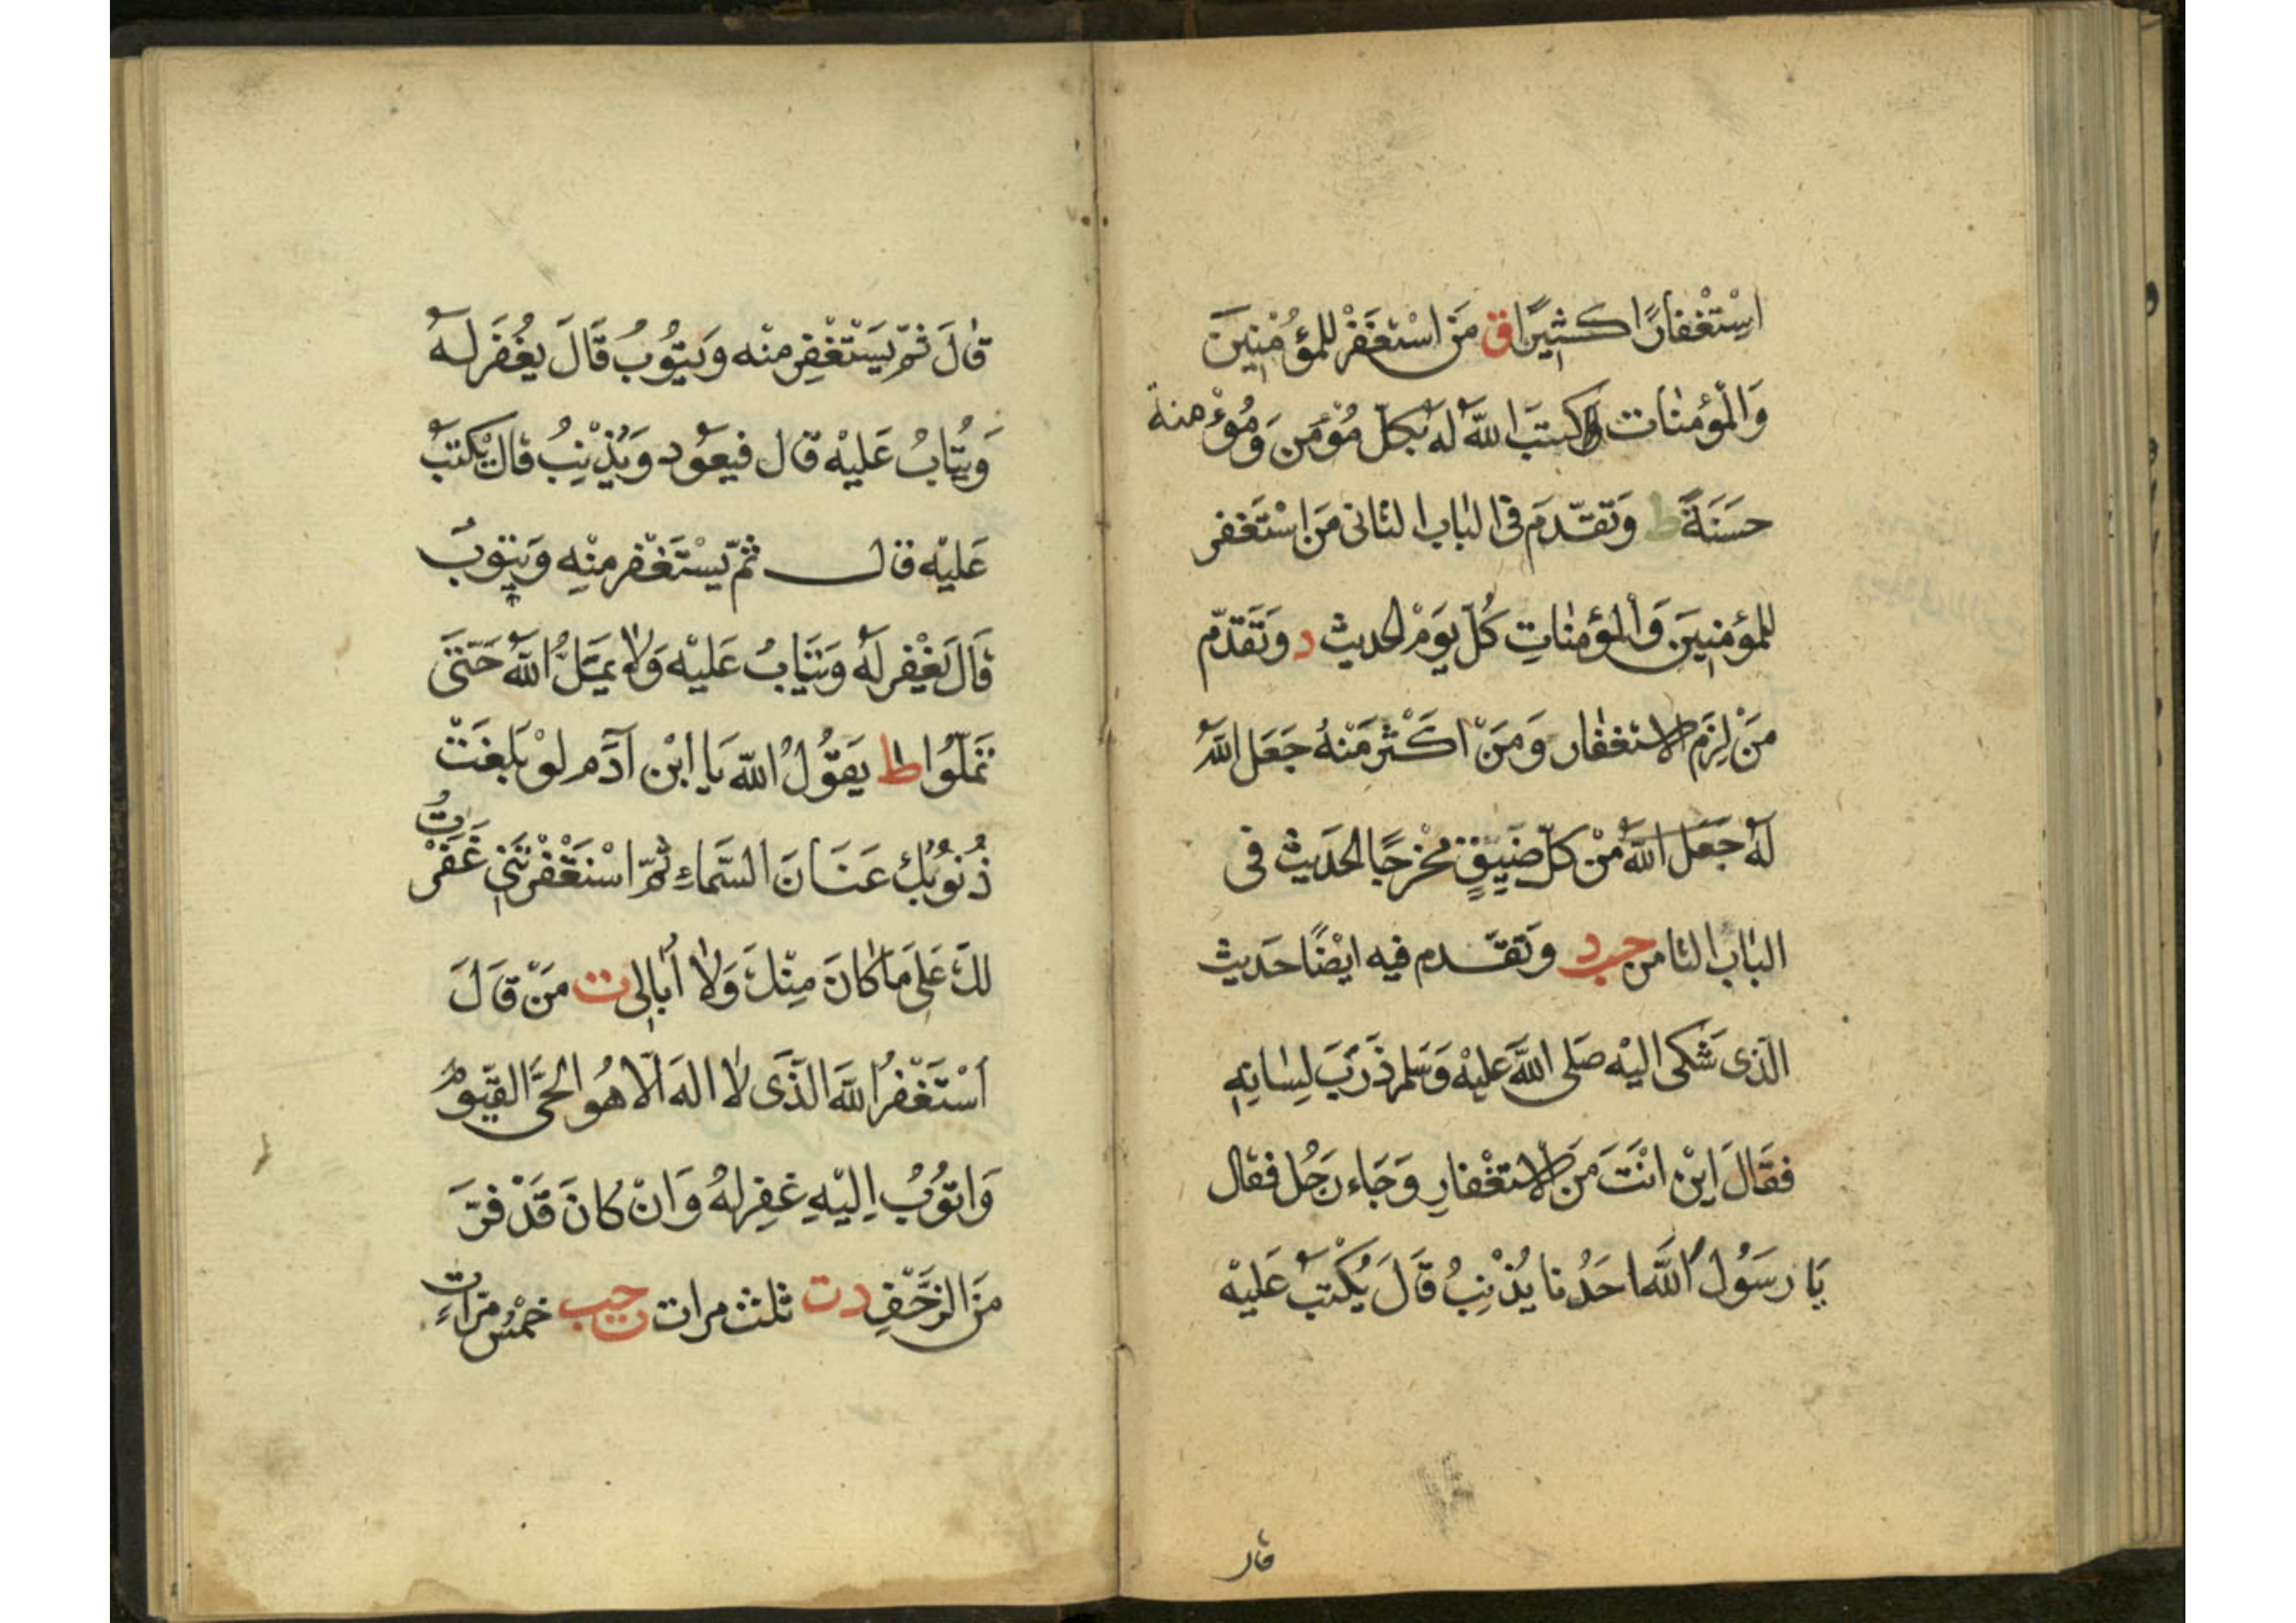 اِسْتِغْفارًا كَثِيرًا ق مَنِ اسْتَغْفَرَ لِلمُؤْمِنِينَ
وَالْمُؤمِنٰات كتَبَ اللّٰه لَه بكلّ مُؤْمِنٍ وَمُؤْمنة
حَسَنَةً ط وَتَقَدّمَ فى البٰاب الثانى مَنِ اسْتَغفر
لِلمؤمِنِينَ وَالمؤمِنٰاتِ كُلّ يَوم الحديث د وَتَقَدّم
مَنْ لزم الاستغفٰار وَمَنْ اكْثَرَ مِنْهُ جَعَل اللّٰه
لَه جَعَل اللّٰه مِنْ كلّ ضيقٍ مخرجًا الحَدِيث فى
البٰاب الثامن حب د وَتَقَدم فيه ايضًا حَديث
الّذى شكى اليْه صَلى اللّٰه عليْه وَسَلم ذَرَبَ لِسٰانِهِ
فقَالَ ايْن انْتَ مِنَ الاستغْفارِ وَجَاء رَجُل فقال
يَا رسُولَ اللّٰه احَدُنا يُذْنِبُ قَالَ يُكْتبُ عَليْه
قال
قالَ ثمّ يَسْتَغْفِر منْه وَيتُوبُ قَالَ يُغْفَر لَه
وَيُتابُ عَليْه قال فيعُود وَيُذْنِبُ قالَ يُكتبُ
عَليْه قال ثمّ يَسْتَغْفر منْهِ وَيَتوبُ
قَالَ يُغْفر لَه وَيُتَابُ عَليْه وَلٰا يَمَلُّ اللّٰه حَتّى
تَمَلّوُا ط يَقوُلُ اللّٰه يَا ابْن آدَم لَوْ بَلغَتْ
ذُنوُبُكَ عَنَانَ السَّمَاءِ ثُمّ اسْتَغْفَرْتَنِي غَفَرْتُ
لكَ عَلى مَا كانَ مِنْكَ وَلٰا أُبالِى ت مَنْ قَالَ
أسْتَغْفرُ اللّٰه الّذَى لٰا الهَ الّا هُو الحىُّ القيّوُمُ
وَاتوُبُ اِليْهِ غفِر لهُ وَانْ كانَ قَدْ فرَّ
مِنَ الزَّحْفِ د ت ثلث مرات ت حب خمْسُ مَرّاتٍ